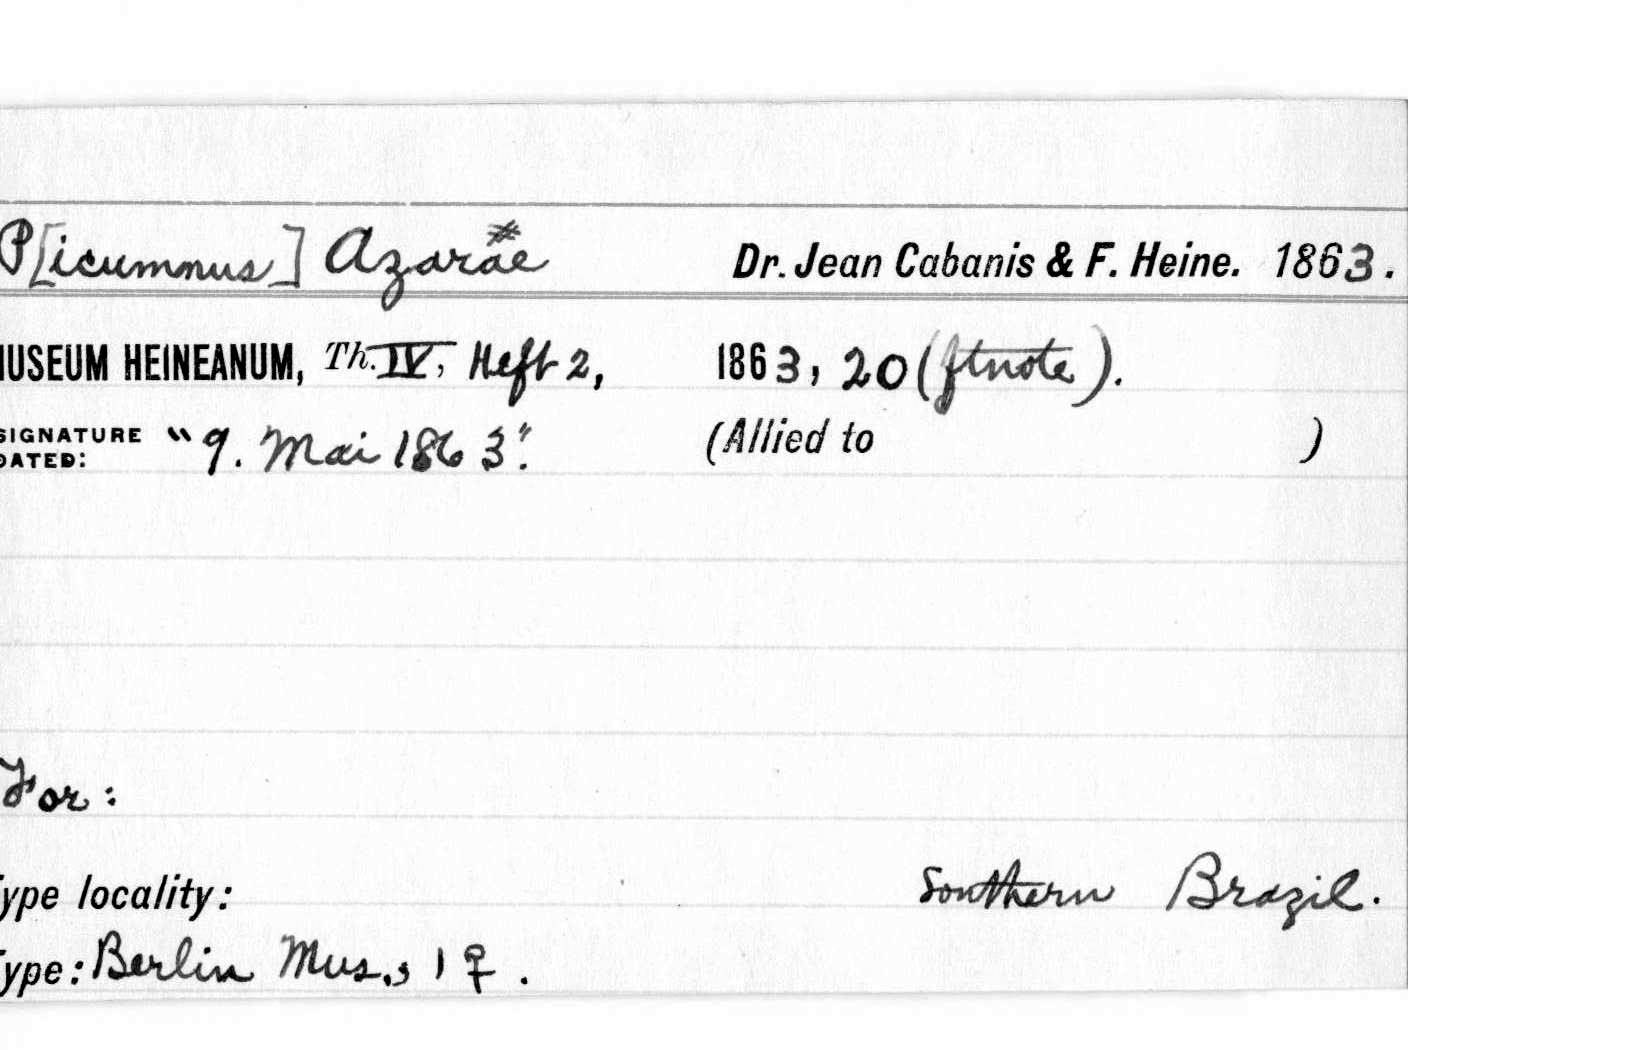 P[icumnus] Azarae # Dr. Jean Cabanis & F. Heine. 1863.
MUSEUM HEINEANUM, Th. IV, Heft 2, 1863, 20 (ftnote).
SIGNATURE DATED: "9. Mai 1863". (Allied to )
For:
Type locality: Southern Brazil.
Type: Berlin Mus., 1 ♀.